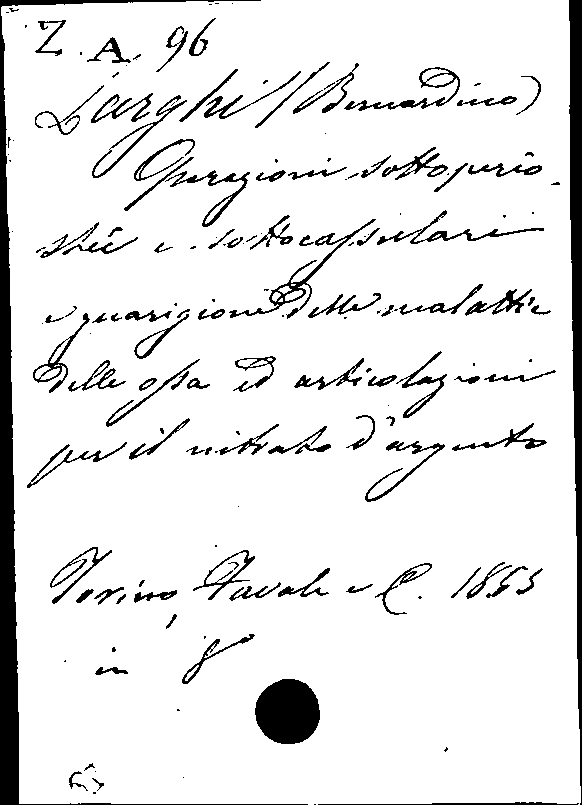 Z. A. 96
Larghi (Bernardino)
Operazioni sottoperio-
stée e sottocapsulari
e guarigione delle malattie
delle ossa ed articolazioni
per il nitrato d'argento
Torino, Favale e C. 1855
in 8°